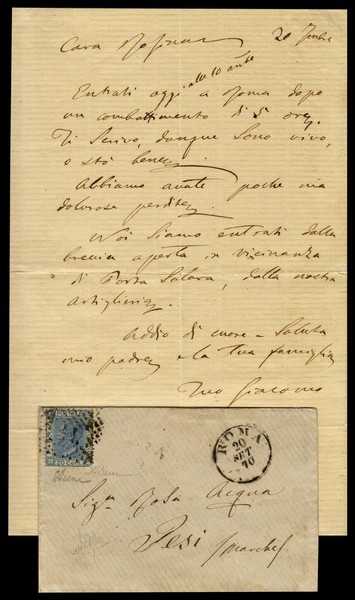 Cara Rosina
20 7mbre
Entrati oggi alle 10 ant. a Roma dopo
un combattimento di 5 ore.
Ti Scrivo, dunque Sono vivo,
e stò bene.
Abbiamo avute poche ma
dolorose perdite.
Noi Siamo entrati dalla
breccia aperta in vicinanza
di Porta Salara, dalla nostra
Artiglieria.
Addio di cuore - Saluta
mio padre e la tua famiglia
Tuo Giacomo
20 CENT.
ROMA
20
SET
70
Sig.ra Rosa Acqua
Jesi
(Marche)